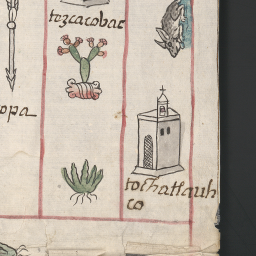 tozcacobac
opa
tochattauh
co